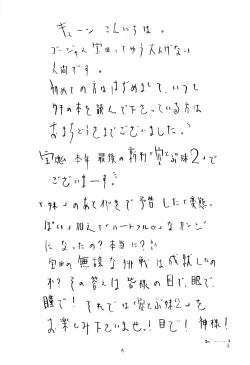 キューン こんにちは。
ゴージャス宝田ってゆう大人げない
人間です。
初めての方ははじめまして、いつも
タチの本を読んで下さっている方は
おまちどうさまでございました。
宝田 本年 最後の新刊「空とぶ妹2」で
ございまーす!
「妹」のあとがきで予告した「変態
っぽい」加えて「ハートフル」なカンジ
になったの?本当に?
宝田の無謀な挑戦は成就したの
か?その答えは皆様の目で、眼で、
瞳で!それでは「空とぶ妹2」を
お楽しみ下さいませ!目で!神様!